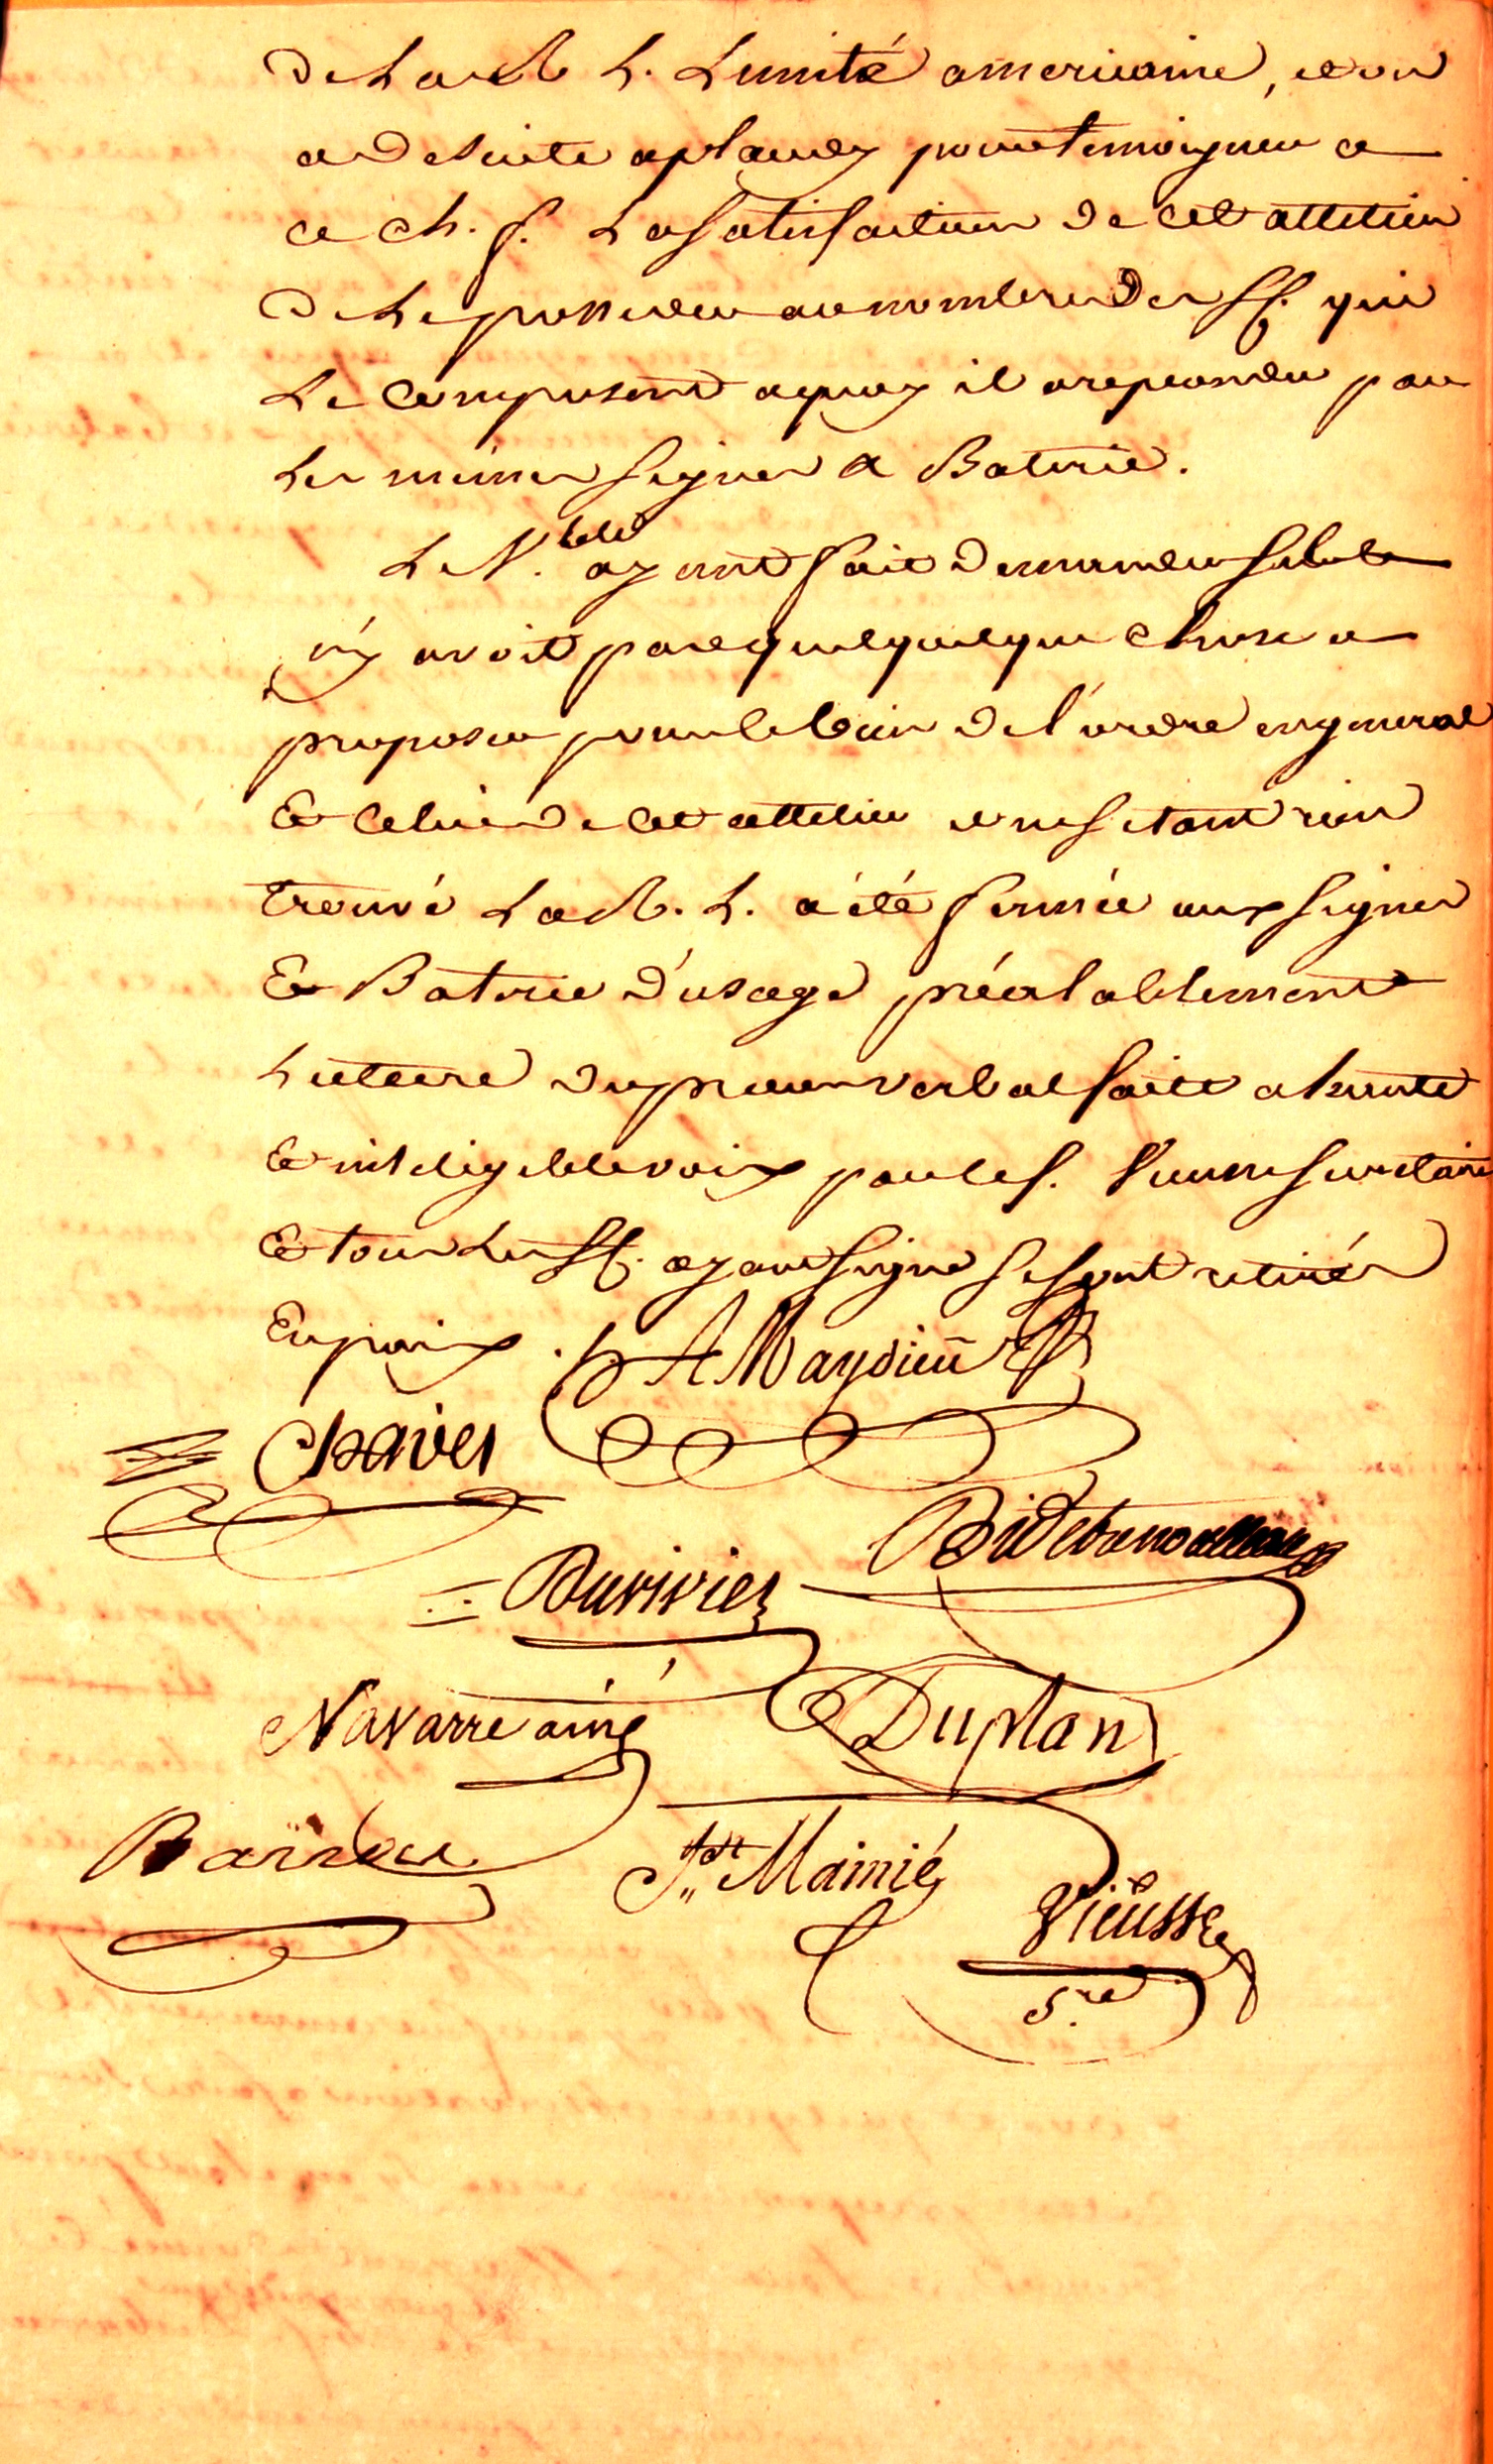 de La R L. Lunité americaine, et on
a de suite aplaudy pour temoigner a
ce ch. f. La satisfaction de cet attelier
de Le posseder au nombre des ff. qui
Le composent aquoy il a repondu par
Les mêmes signes & Baterie.
Le V.ble ayant fait demander sil
n'y avoit pas quelque chose a
proposer pour le bien de l'ordre en general
Et celui de cet attelier et ne setant rien
trouvé La R. L. a été fermée aux signes
Et Baterie d'usage préalablement
Lecteure du proces verbal faitte a haute
Et inteligeble voix par le f. Vieusse Secretaire
Et tous Les ff. ayant signé se sont retirés
En paix.
A Maydieu
Chaves
Duvivier
Navarre ainé
Duplan
Barrere
J.. Mainié
Vieusse
S.re